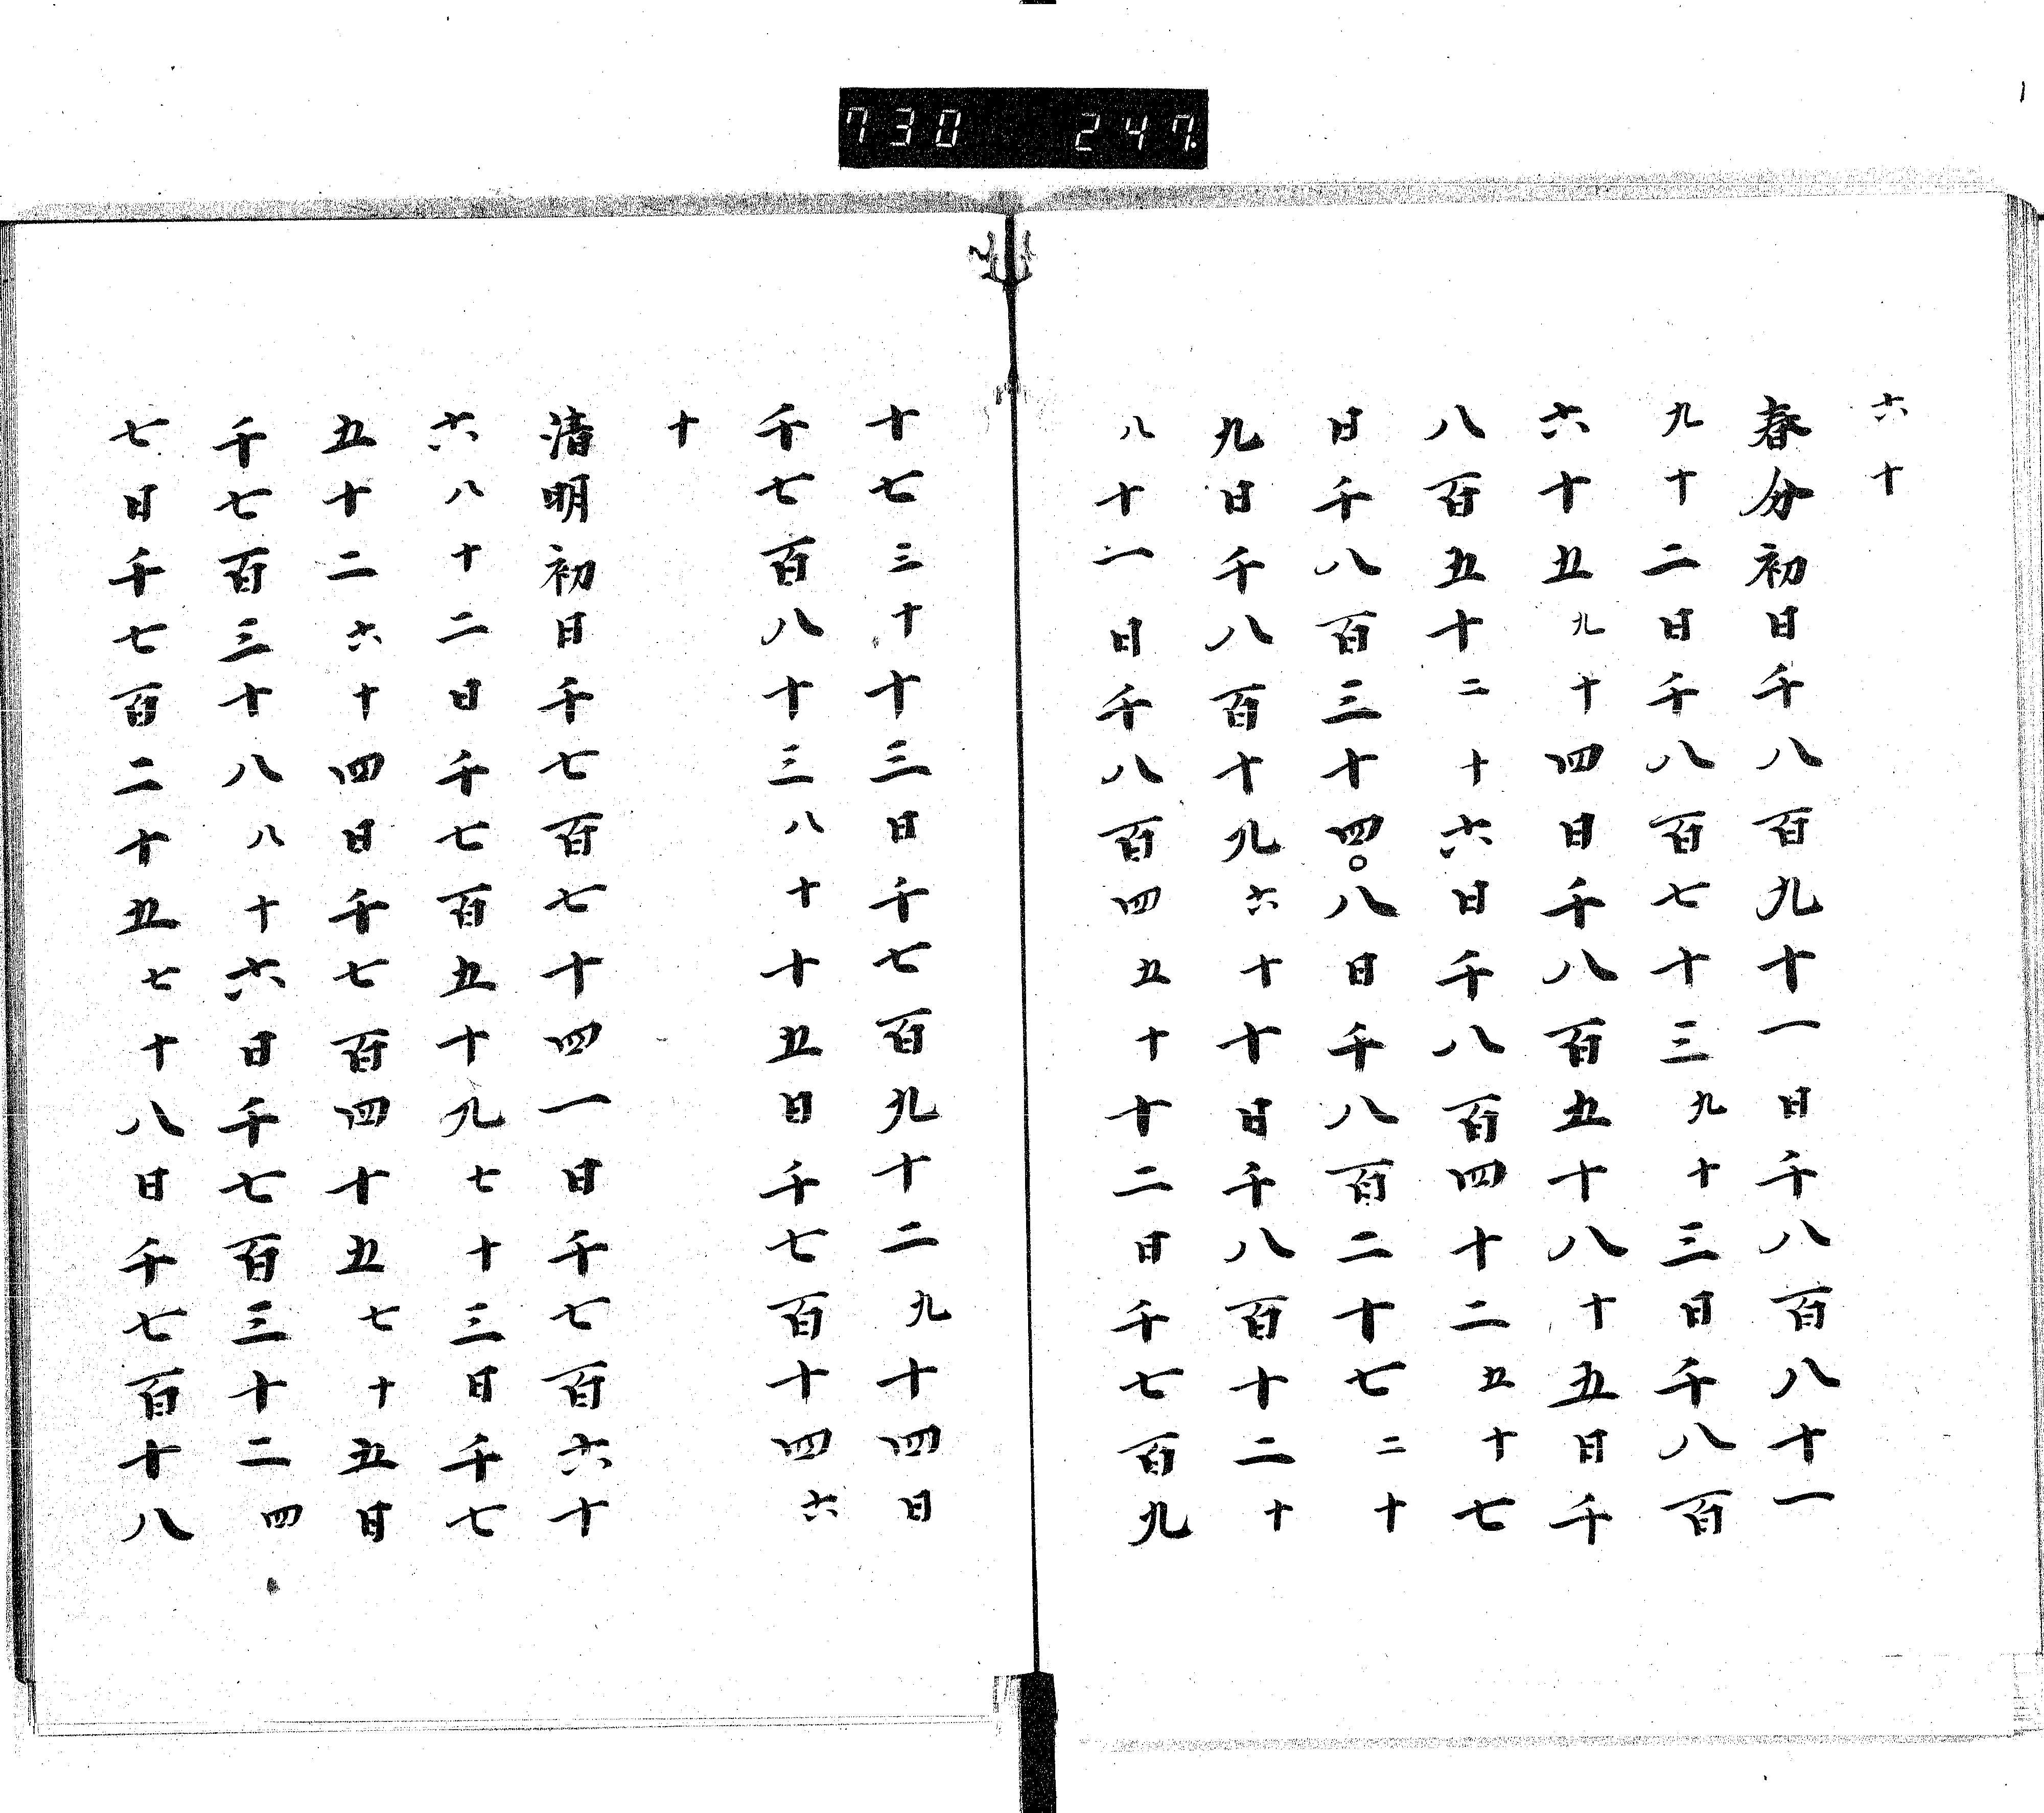 730 247
六十
春分初日千八百九十一日千八百八十一
九十二日千八百七十三九十三日千八百
六十五九十四日千八百五十八十五日千
八百五十二十六日千八百四十二五十七
日千八百三十四〇八日千八百二十七二十
九日千八百十九六十十日千八百十二十
八十一日千八百四五十十二日千七百九
十七三十十三日千七百九十二九十四日
千七百八十三八十十五日千七百十四六
十
清明初日千七百七十四一日千七百六十
六八十二日千七百五十九七十三日千七
五十二六十四日千七百四十五七十五日
千七百三十八八十六日千七百三十二四
七日千七百二十五七十八日千七百十八